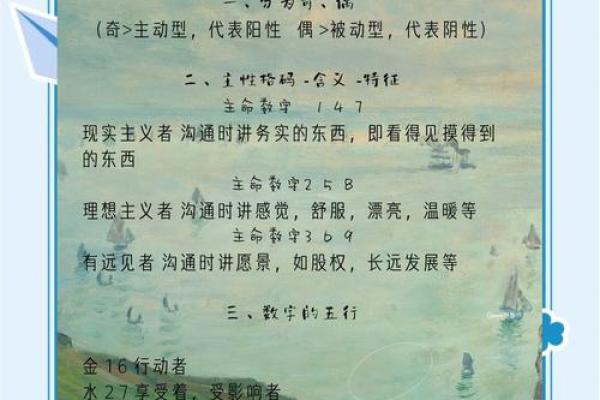 一、分为奇、偶
（奇>主动型，代表阳性 偶>被动型，代表阴性）
二、主性格码-含义-特征
主命数字 147
现实主义者 沟通时讲务实的东西，即看得见摸得到
的东西
主命数字258
理想主义者 沟通时讲感觉，舒服，漂亮，温暖等
主命数字369
有远见者 沟通时讲愿景，如股权，长远发展等
三、数字的五行
金16行动者
水27享受着，受影响者